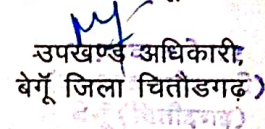 उपखण्ड अधिकारी,
बेगूँ जिला चितौडगढ़)